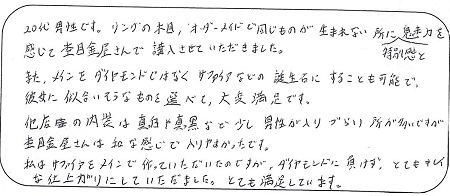 20代男性です。リングの木目、オーダーメイドで同じものが生まれない所に魅力を
特別感と
感じて杢目金屋さんで購入させていただきました。
また、メインをダイヤモンドではなくサファイアなどの誕生石にすることも可能で、
彼女に似合いそうなものを選べて、大変満足です。
他店舗の内装は真白や真黒などで少し男性が入りづらい所が多いですが
杢目金屋さんは和な感じで入りやすかったです。
私はサファイアをメインで作っていただいたのですが、ダイヤモンドに負けず、とてもキレイ
な仕上がりにしていただきました。とても満足しています。